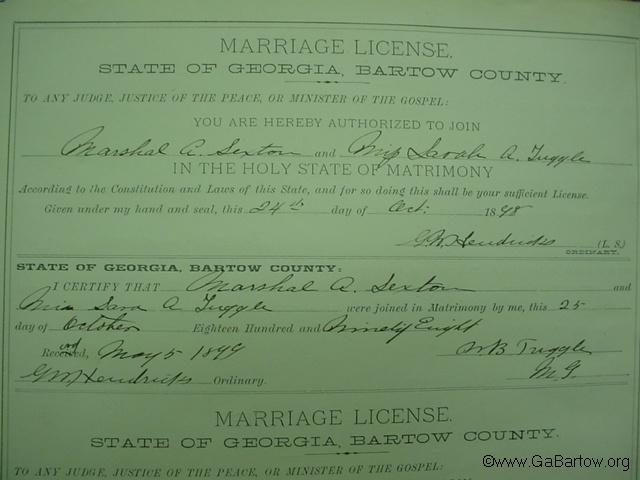 MARRIAGE LICENSE.
STATE OF GEORGIA, BARTOW COUNTY.
TO ANY JUDGE, JUSTICE OF THE PEACE, OR MINISTER OF THE GOSPEL:
YOU ARE HEREBY AUTHORIZED TO JOIN
Marshal A. Sexton and Miss Sarah A. Tuggle
IN THE HOLY STATE OF MATRIMONY
According to the Constitution and Laws of this State, and for so doing this shall be your sufficient License.
Given under my hand and seal, this 24th day of Oct: 1898
G W Hendricks (L. S.)
ORDINARY.
STATE OF GEORGIA, BARTOW COUNTY:
I CERTIFY THAT Marshal A. Sexton and
Miss Sara A Tuggle were joined in Matrimony by me, this 25
day of October Eighteen Hundred and Ninety Eight
May 5 1899 W B Tuggle
G W Hendricks Ordinary. M. G.
MARRIAGE LICENSE.
STATE OF GEORGIA, BARTOW COUNTY.
TO ANY JUDGE, JUSTICE OF THE PEACE, OR MINISTER OF THE GOSPEL:
©www.GaBartow.org